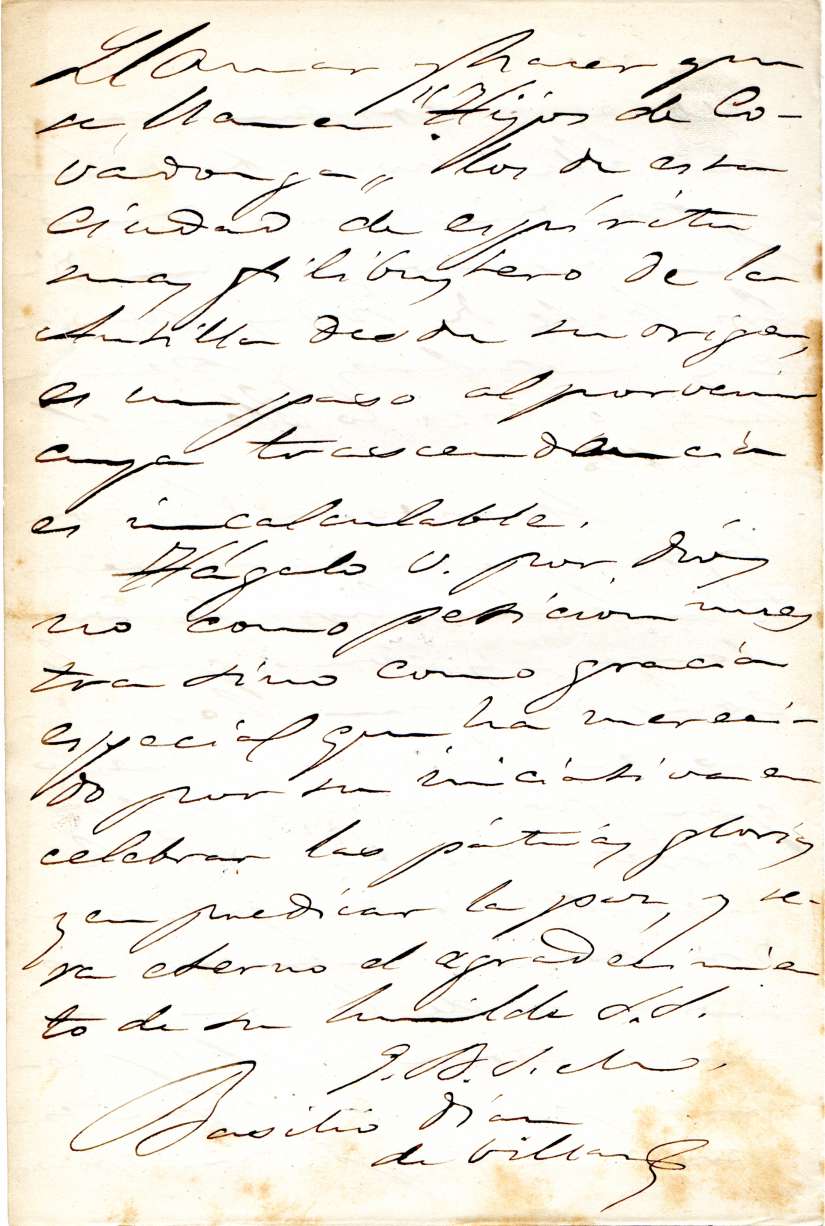 Llamar y hacer que
se llamen "Hijos de Co-
vadonga„ los de esta
Ciudad de espíritu
mas filibustero de la
Antilla desde su origen,
es un paso al porvenir
cuya trascendencia
es incalculable.
Hágalo V. por Dios
no como petición nues
tra sino como gracia
especial que ha mereci-
do por su iniciativa en
celebrar las pátrias glorias
y en predicar la paz, y se-
ra eterno el agradecimien
to de su humilde S.S.
Q.B.S.M.
Basilio Díaz
de Villar